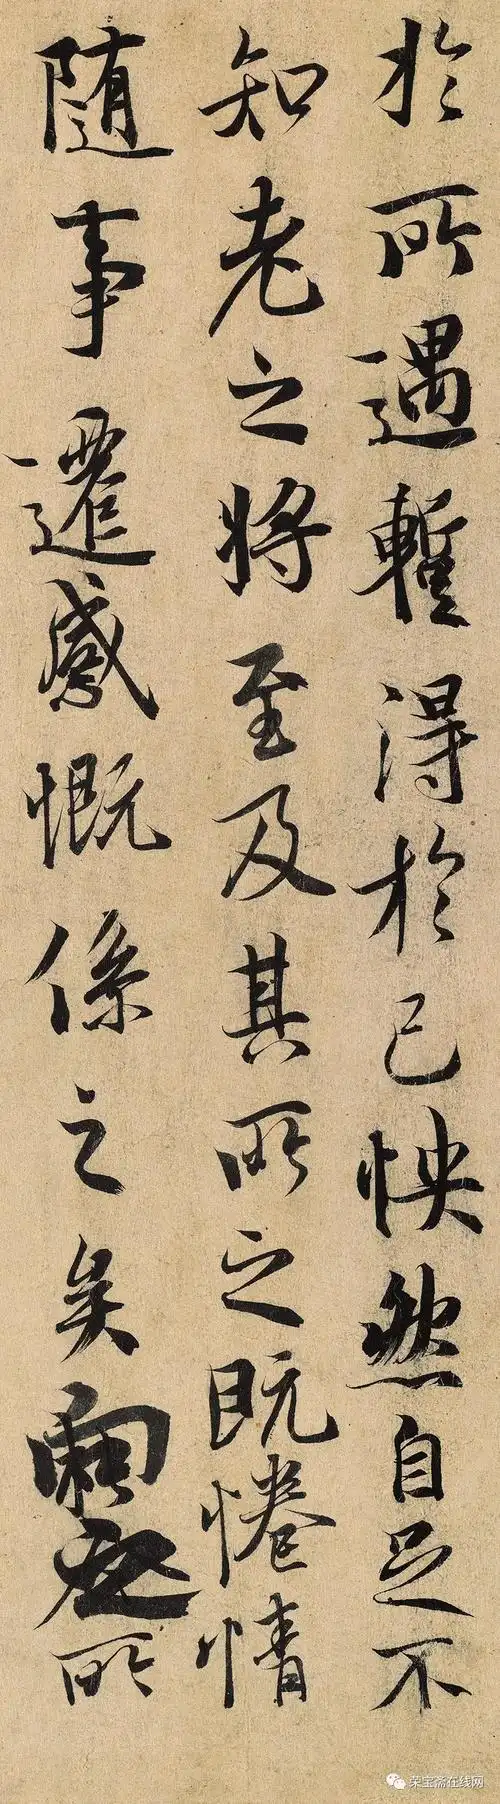 於所遇暫得於己怏然自足不
知老之將至及其所之既惓情
隨事遷感慨係之矣向之所
荣宝斋在线网